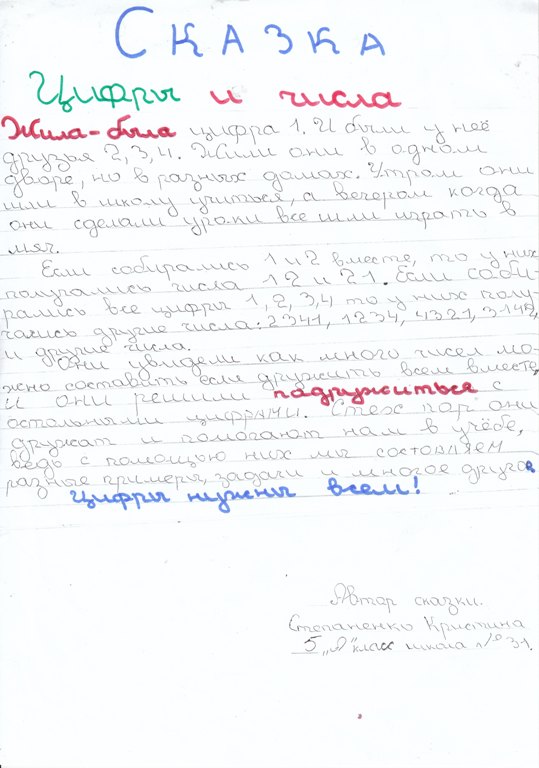 СКАЗКА
Цифры и числа
Жила-была цифра 1. И были у неё
друзья 2, 3, 4. Жили они в одном
дворе, но в разных домах. Утром они
шли в школу учиться, а вечером когда
они сделали уроки все шли играть в
мяч.
Если собирались 1 и 2 вместе, то у них
получались числа 12 и 21. Если соби-
рались все цифры 1, 2, 3, 4 то у них полу-
чались другие числа: 2341, 1234, 4321, 3142,
и другие числа.
Они увидели как много чисел мо-
жно составить если дружить всем вместе,
и они решили падружиться с
остальными цифрами. С тех пор они
дружат и помогают нам в учёбе,
ведь с помощью них мы составляем
разные примеры, задачи и многое другое
Цифры нужны всем!
Автор сказки.
Степаненко Кристина
5 „А" класс школа №31.